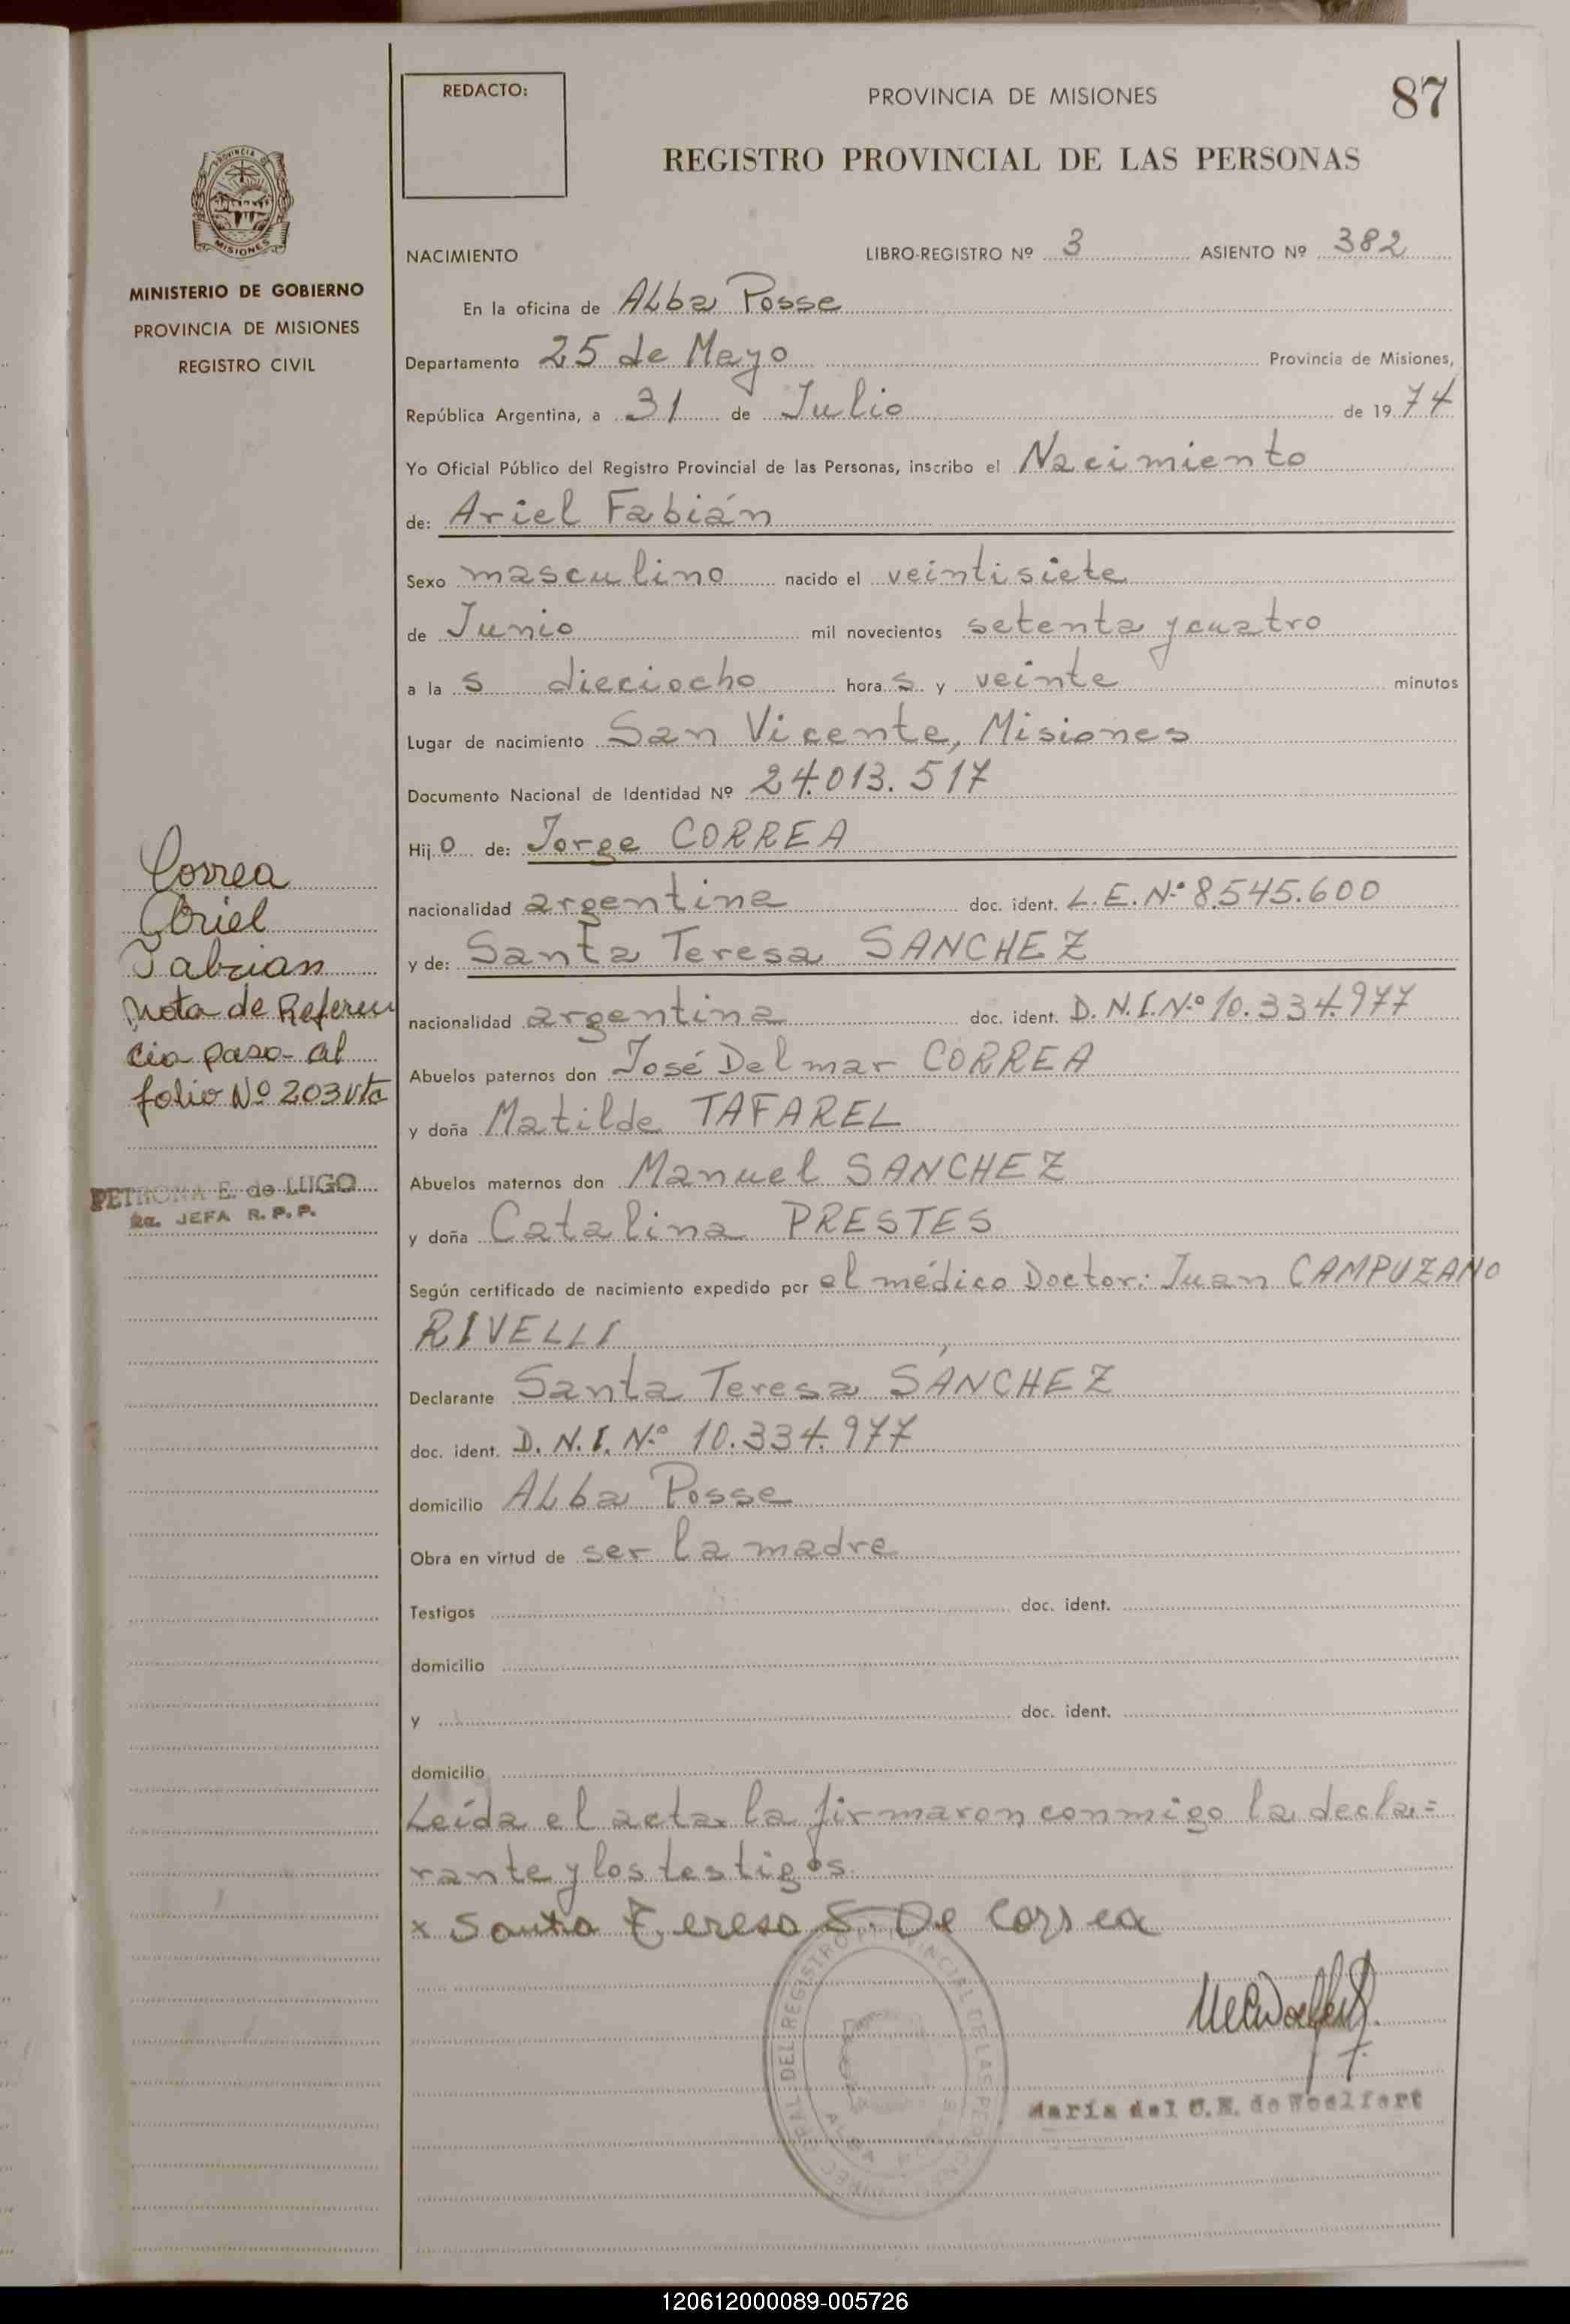 REDACTO:
PROVINCIA DE MISIONES
87
REGISTRO PROVINCIAL DE LAS PERSONAS
PROVINCIA DE
MISIONES
MINISTERIO DE GOBIERNO
PROVINCIA DE MISIONES
REGISTRO CIVIL
NACIMIENTO LIBRO-REGISTRO Nº 3 ASIENTO Nº 382
En la oficina de Alba Posse
Departamento 25 de Mayo Provincia de Misiones,
República Argentina, a 31 de Julio de 19 74
Yo Oficial Público del Registro Provincial de las Personas, inscribo el Nacimiento
de: Ariel Fabián
Sexo masculino nacido el veintisiete
de Junio mil novecientos setenta y cuatro
a la s dieciocho hora s y veinte minutos
Lugar de nacimiento San Vicente, Misiones
Documento Nacional de Identidad Nº 24.013.517
Hij o de: Jorge CORREA
nacionalidad argentina doc. ident. L.E.Nº 8.545.600
y de: Santa Teresa SANCHEZ
nacionalidad argentina doc. ident. D.N.I.Nº 10.334.977
Abuelos paternos don José Delmar CORREA
y doña Matilde TAFAREL
Abuelos maternos don Manuel SANCHEZ
y doña Catalina PRESTES
Según certificado de nacimiento expedido por el médico Doctor: Juan CAMPUZANO
RIVELLI
Declarante Santa Teresa SÁNCHEZ
doc. ident. D.N.I. Nº 10.334.977
domicilio Alba Posse
Obra en virtud de ser la madre
Testigos doc. ident.
domicilio
y doc. ident.
domicilio
Leída el acta la firmaron conmigo la decla=
rante y los testigos.
x Santa Teresa S. De Correa
María del C. de Woelfert
Correa
Ariel
Fabian
Nota de Referen
cia paso al
folio Nº 203 Vta
PETRONA E. de LUGO
2a. JEFA R.P.P.
DEL REGISTRO PROVINCIAL DE LAS PERSONAS
120612000089-005726